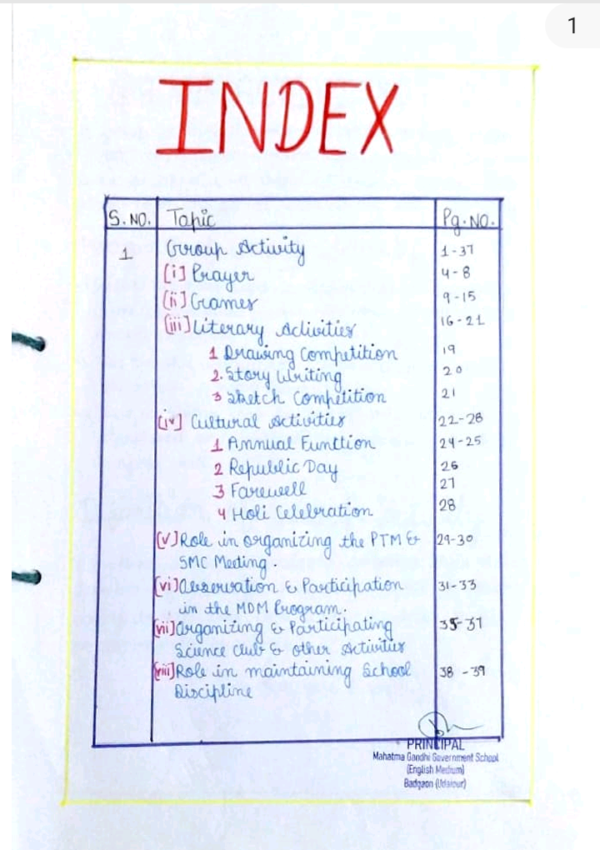 1
INDEX
S. NO. Topic Pg. NO.
1 Group Activity 1-37
[i] Prayer 4-8
[ii] Games 9-15
[iii] Literary Activities 16-21
1 Drawing Competition 19
2. Story Writing 20
3 Sketch Competition 21
[iv] Cultural Activities 22-28
1 Annual Function 24-25
2 Republic Day 26
3 Farewell 27
4 Holi Celebration 28
[v] Role in organizing the PTM & 29-30
SMC Meeting.
[vi] Observation & Participation 31-33
in the MDM Program.
[vii] Organizing & Participating 35-37
Science Club & other Activities
[viii] Role in maintaining School 38-39
Discipline
PRINCIPAL
Mahatma Gandhi Government School
(English Medium)
Badgaon (Udaipur)